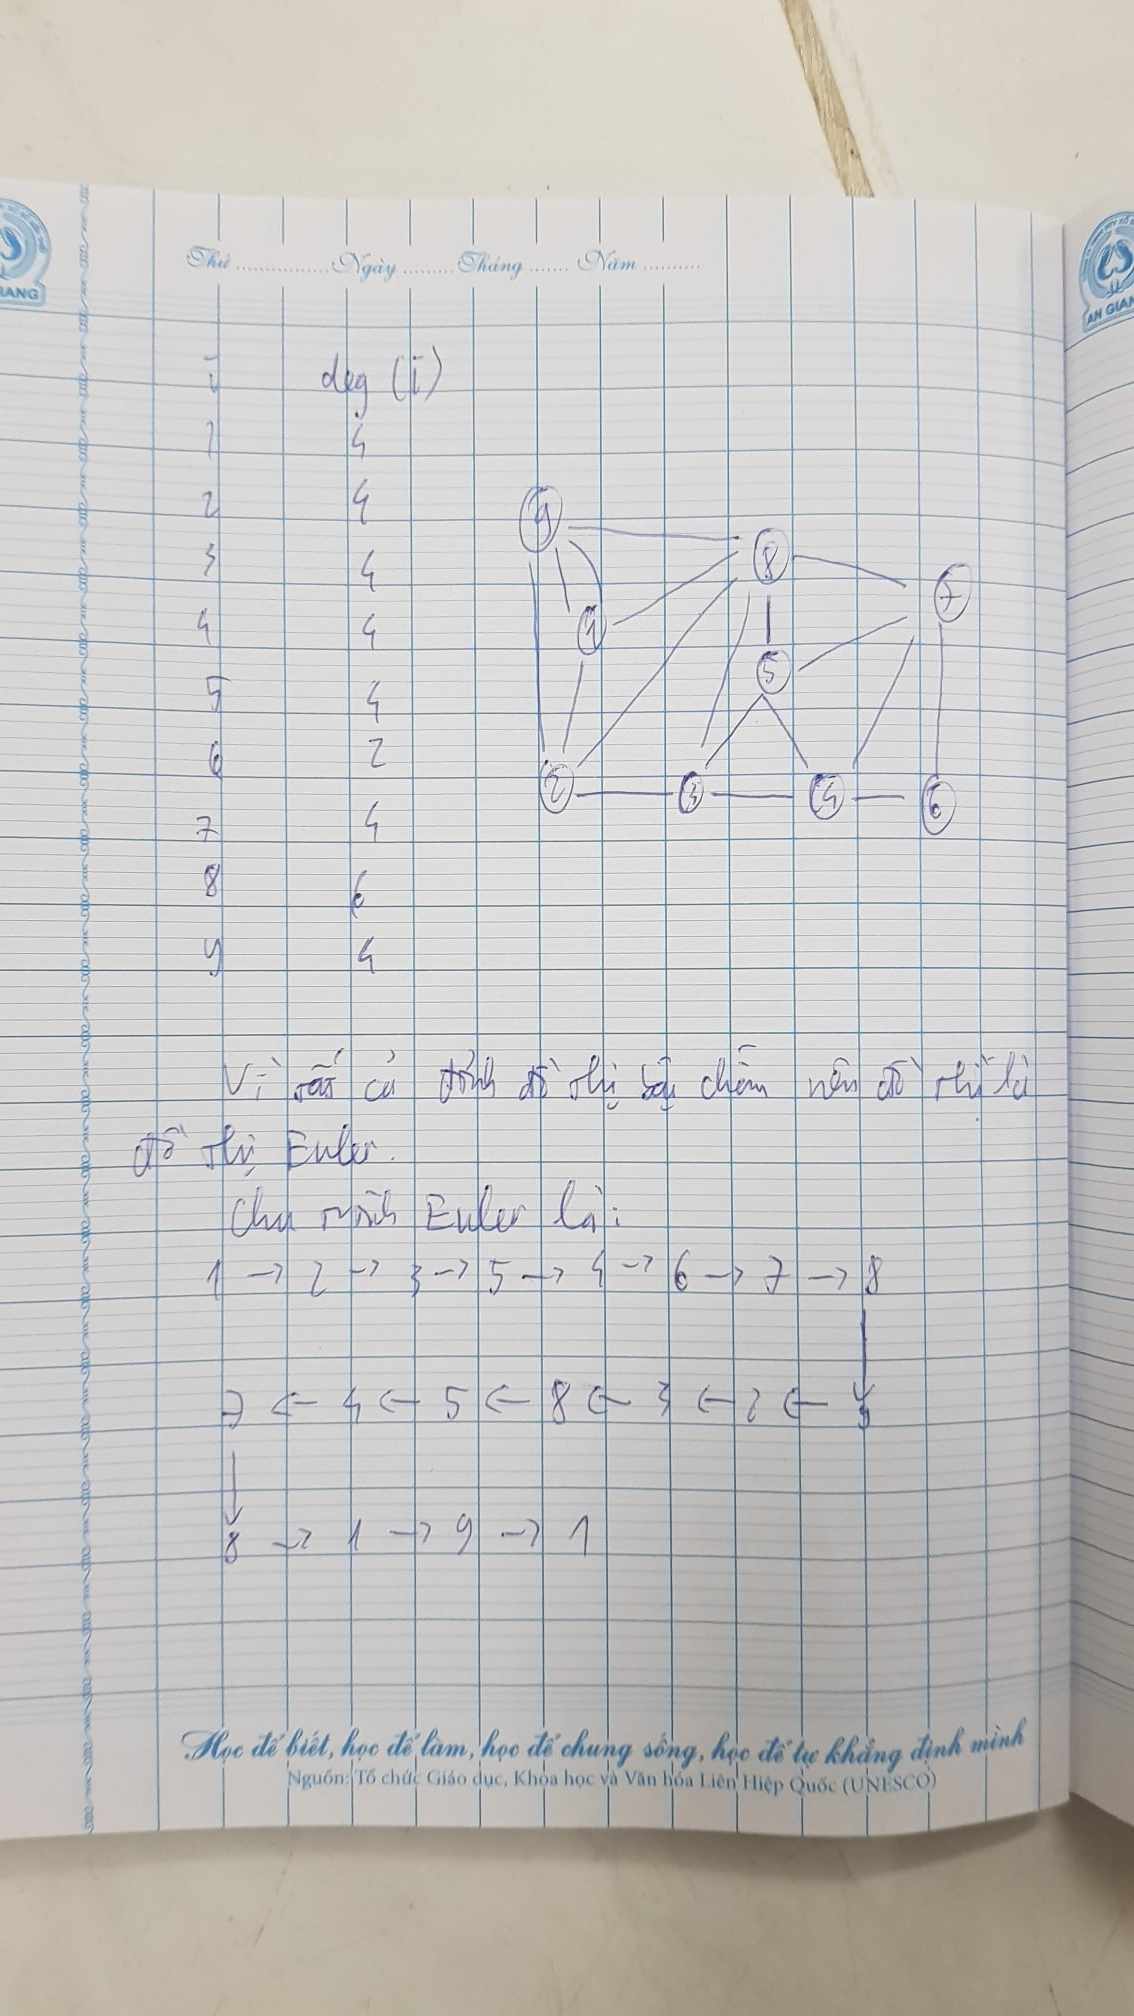 Thứ ................. Ngày ......... Tháng ....... Năm ..........
GIANG
AN GIANG
i deg (i)
1 4
2 4
3 4
4 4
5 4
6 2
7 4
8 6
9 4
9
8
7
1
5
2 3 4 6
Vì tất cả đỉnh đồ thị bậc chẵn nên đồ thị là
đồ thị Euler.
Chu trình Euler là:
1 -> 2 -> 3 -> 5 -> 4 -> 6 -> 7 -> 8
7 <- 4 <- 5 <- 8 <- 3 <- 2 <-
8 -> 1 -> 9 -> 1
Học để biết, học để làm, học để chung sống, học để tự khẳng định mình
Nguồn: Tổ chức Giáo dục, Khoa học và Văn hóa Liên Hiệp Quốc (UNESCO)